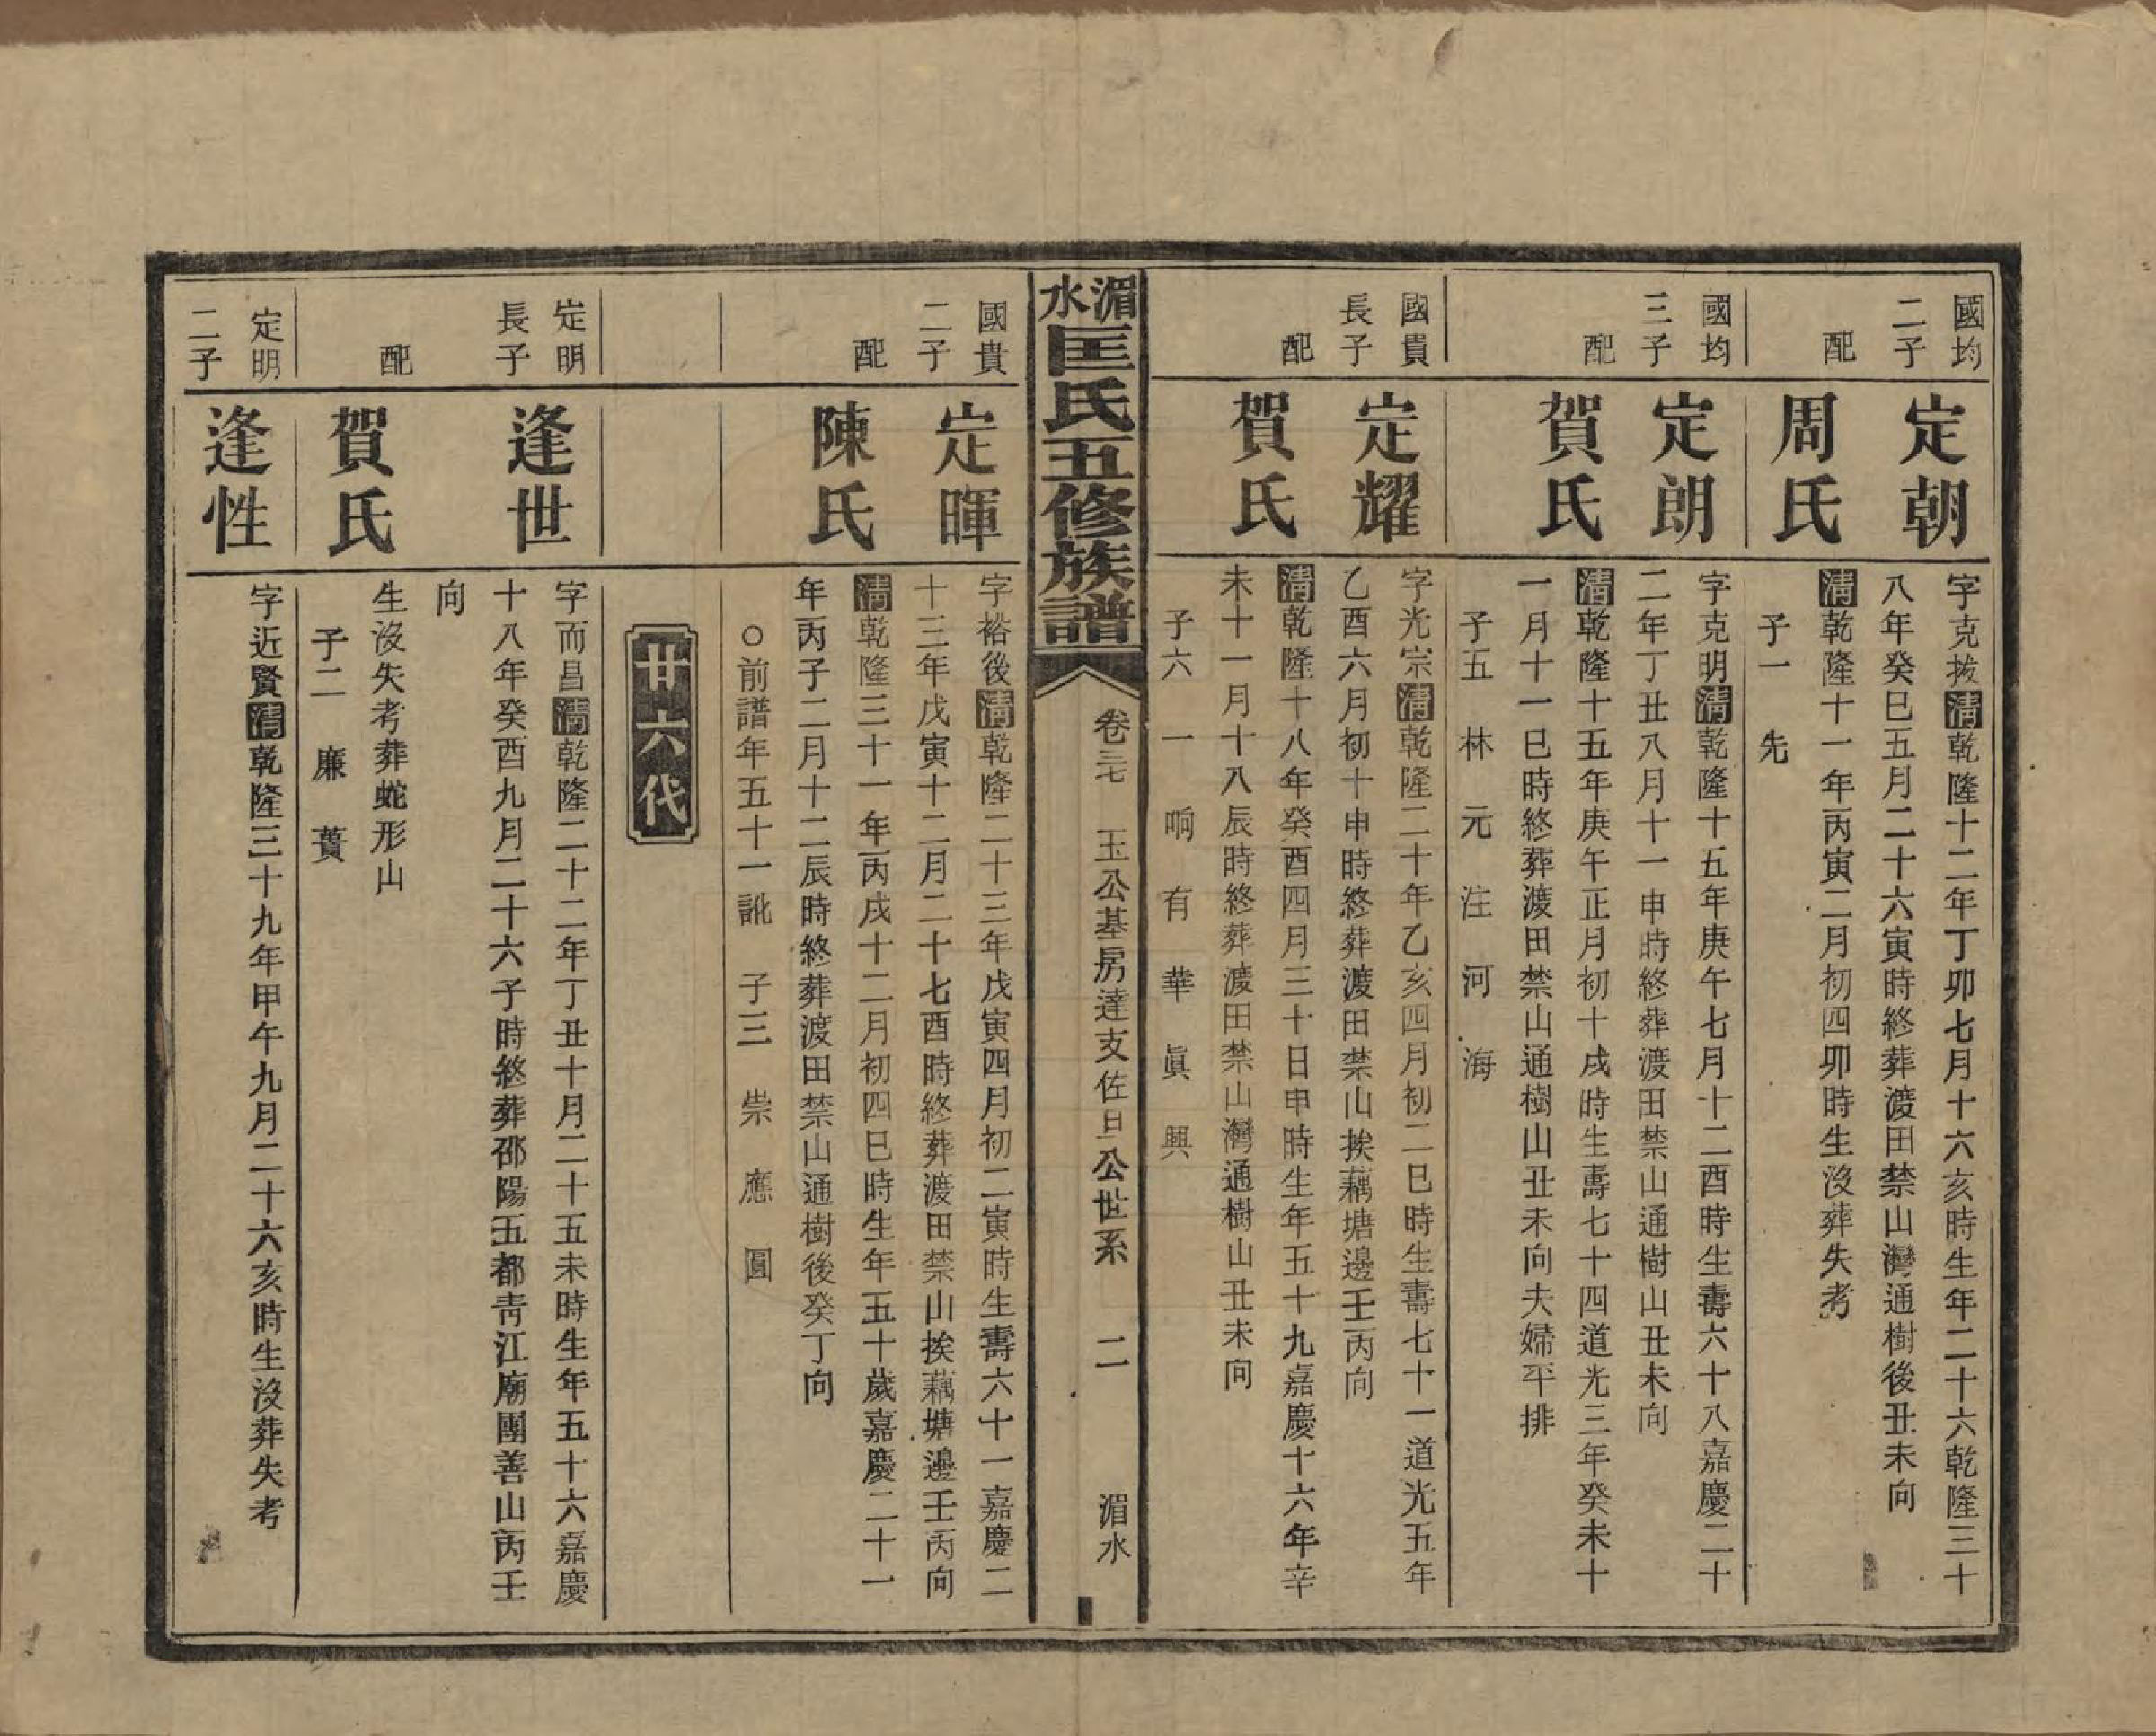 國均
二子
定朝
字克拔清乾隆十二年丁卯七月十六亥時生年二十六乾隆三十
八年癸巳五月二十六寅時終葬渡田禁山灣通樹後丑未向
配
周氏
清乾隆十一年丙寅二月初四卯時生沒葬失考
子一　先
國均
三子
定朗
字克明清乾隆十五年庚午七月十二酉時生壽六十八嘉慶二十
二年丁丑八月十一申時終葬渡田禁山通樹山丑未向
配
賀氏
清乾隆十五年庚午正月初十戌時生壽七十四道光三年癸未十
一月十一巳時終葬渡田禁山通樹山丑未向夫婦平排
子五　林　元　注　河　海
國貴
長子
定耀
字光宗清乾隆二十年乙亥四月初二巳時生壽七十一道光五年
乙酉六月初十申時終葬渡田禁山挨藕塘邊壬丙向
配
賀氏
清乾隆十八年癸酉四月三十日申時生年五十九嘉慶十六年辛
未十一月十八辰時終葬渡田禁山灣通樹山丑未向
子六　一　响　有　華　眞　興
湄水匡氏五修族譜
卷三七　玉公基房達支佐旦公世系　二　湄水
國貴
二子
定暉
字裕後清乾隆二十三年戊寅四月初二寅時生壽六十一嘉慶二
十三年戊寅十二月二十七酉時終葬渡田禁山挨藕塘邊壬丙向
配
陳氏
清乾隆三十一年丙戌十二月初四巳時生年五十歲嘉慶二十一
年丙子二月十二辰時終葬渡田禁山通樹後癸丁向
○前譜年五十一訛　子三　崇　應　圓
廿六代
定明
長子
逢世
字而昌清乾隆二十二年丁丑十月二十五未時生年五十六嘉慶
十八年癸酉九月二十六子時終葬邵陽五都靑江廟團善山丙壬
向
配
賀氏
生沒失考葬蛇形山
子二　廉　蕢
定明
二子
逢性
字近賢清乾隆三十九年甲午九月二十六亥時生沒葬失考